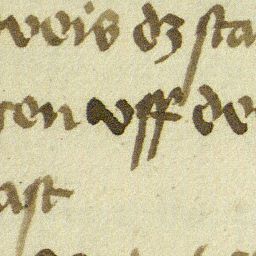 weis dz sta
gen vff de
ast